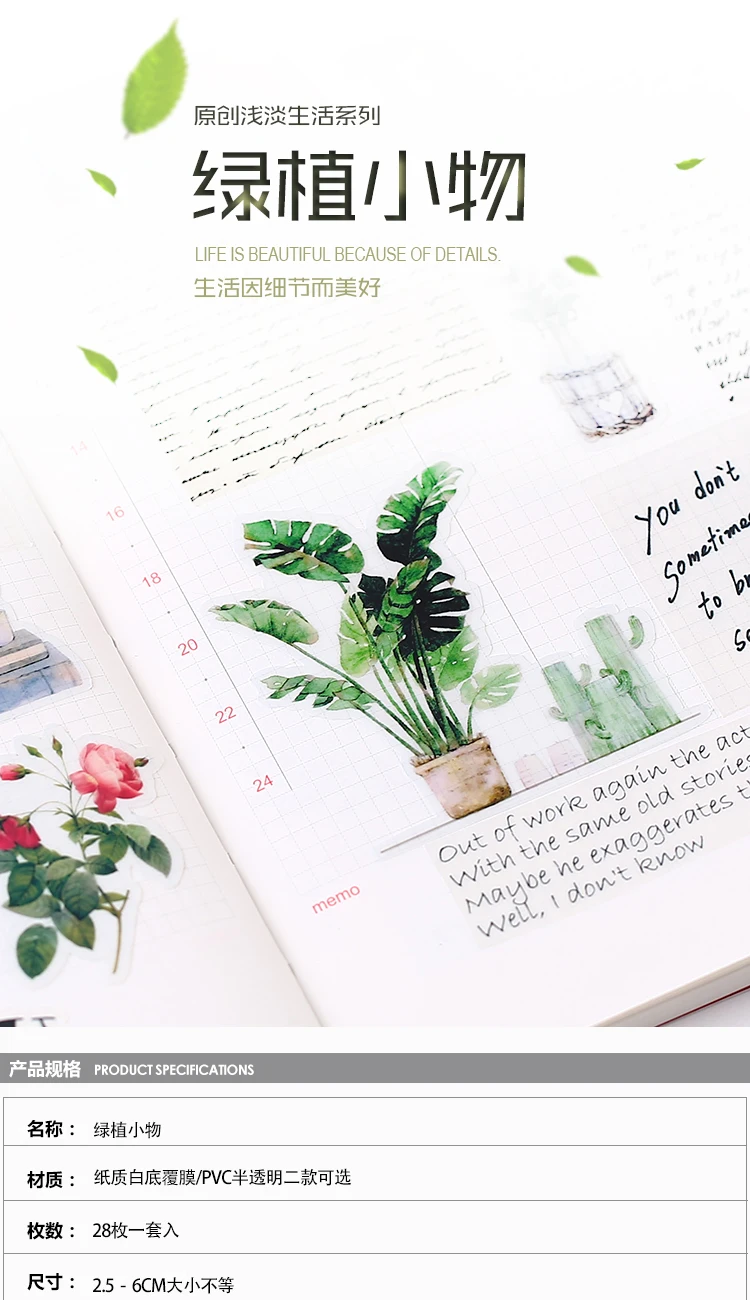 原创浅淡生活系列
绿植小物
LIFE IS BEAUTIFUL BECAUSE OF DETAILS.
生活因细节而美好
14
16
18
20
22
24
memo
You don't
Sometimes
to
Out of work again the
With the same old stories
Maybe he exaggerates
Well, I don't know
产品规格 PRODUCT SPECIFICATIONS
名称： 绿植小物
材质： 纸质白底覆膜/PVC半透明二款可选
枚数： 28枚一套入
尺寸： 2.5 - 6CM大小不等